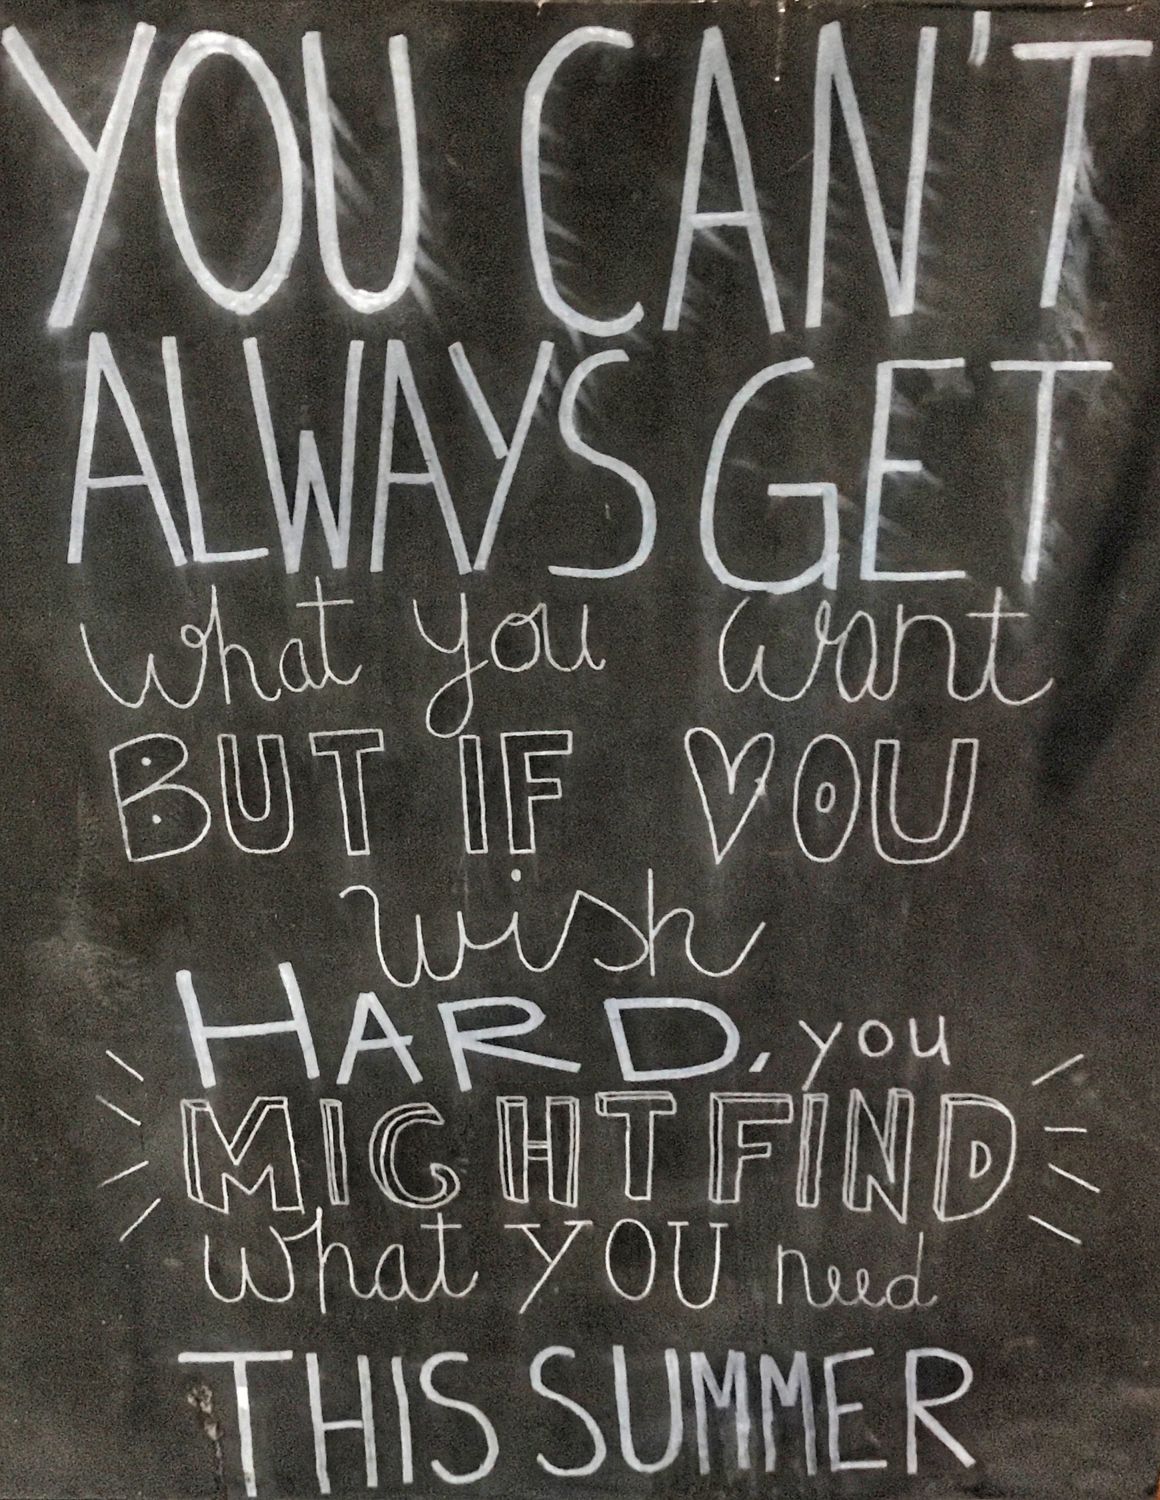 YOU CAN'T
ALWAYS GET
what you want
BUT IF YOU
wish
HARD, you
MIGHT FIND
what YOU need
THIS SUMMER